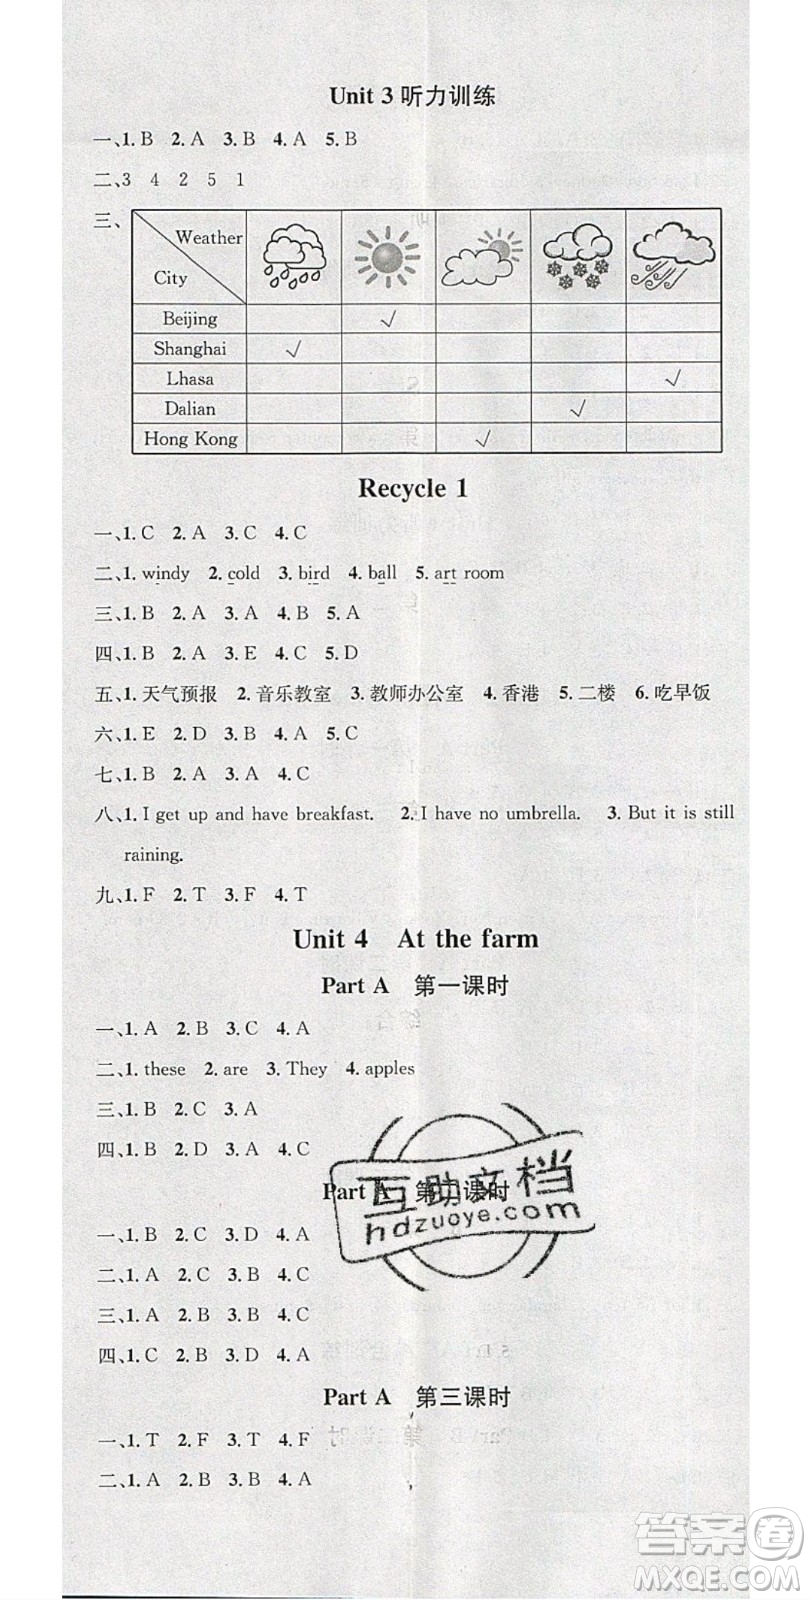 Unit 3听力训练
一、1. B 2. A 3. B 4. A 5. B
二、3 4 2 5 1
三、
Weather
City
Beijing √
Shanghai √
Lhasa √
Dalian √
Hong Kong √
Recycle 1
一、1. C 2. A 3. C 4. C
二、1. windy 2. cold 3. bird 4. ball 5. art room
三、1. B 2. A 3. A 4. B 5. A
四、1. B 2. A 3. E 4. C 5. D
五、1. 天气预报 2. 音乐教室 3. 教师办公室 4. 香港 5. 二楼 6. 吃早饭
六、1. E 2. D 3. B 4. A 5. C
七、1. B 2. A 3. A 4. C
八、1. I get up and have breakfast. 2. I have no umbrella. 3. But it is still
raining.
九、1. F 2. T 3. F 4. T
Unit 4 At the farm
Part A 第一课时
一、1. A 2. B 3. C 4. A
二、1. these 2. are 3. They 4. apples
三、1. B 2. C 3. A
四、1. B 2. D 3. A 4. C
Part A 第二课时
互助文档
hdzuoye.com
一、1. B 2. C 3. D 4. A
二、1. A 2. C 3. B 4. C
三、1. A 2. B 3. B 4. C
四、1. C 2. B 3. D 4. A
Part A 第三课时
一、1. T 2. F 3. T 4. F
二、1. A 2. B 3. B 4. A
答案圈
MXQE.COM